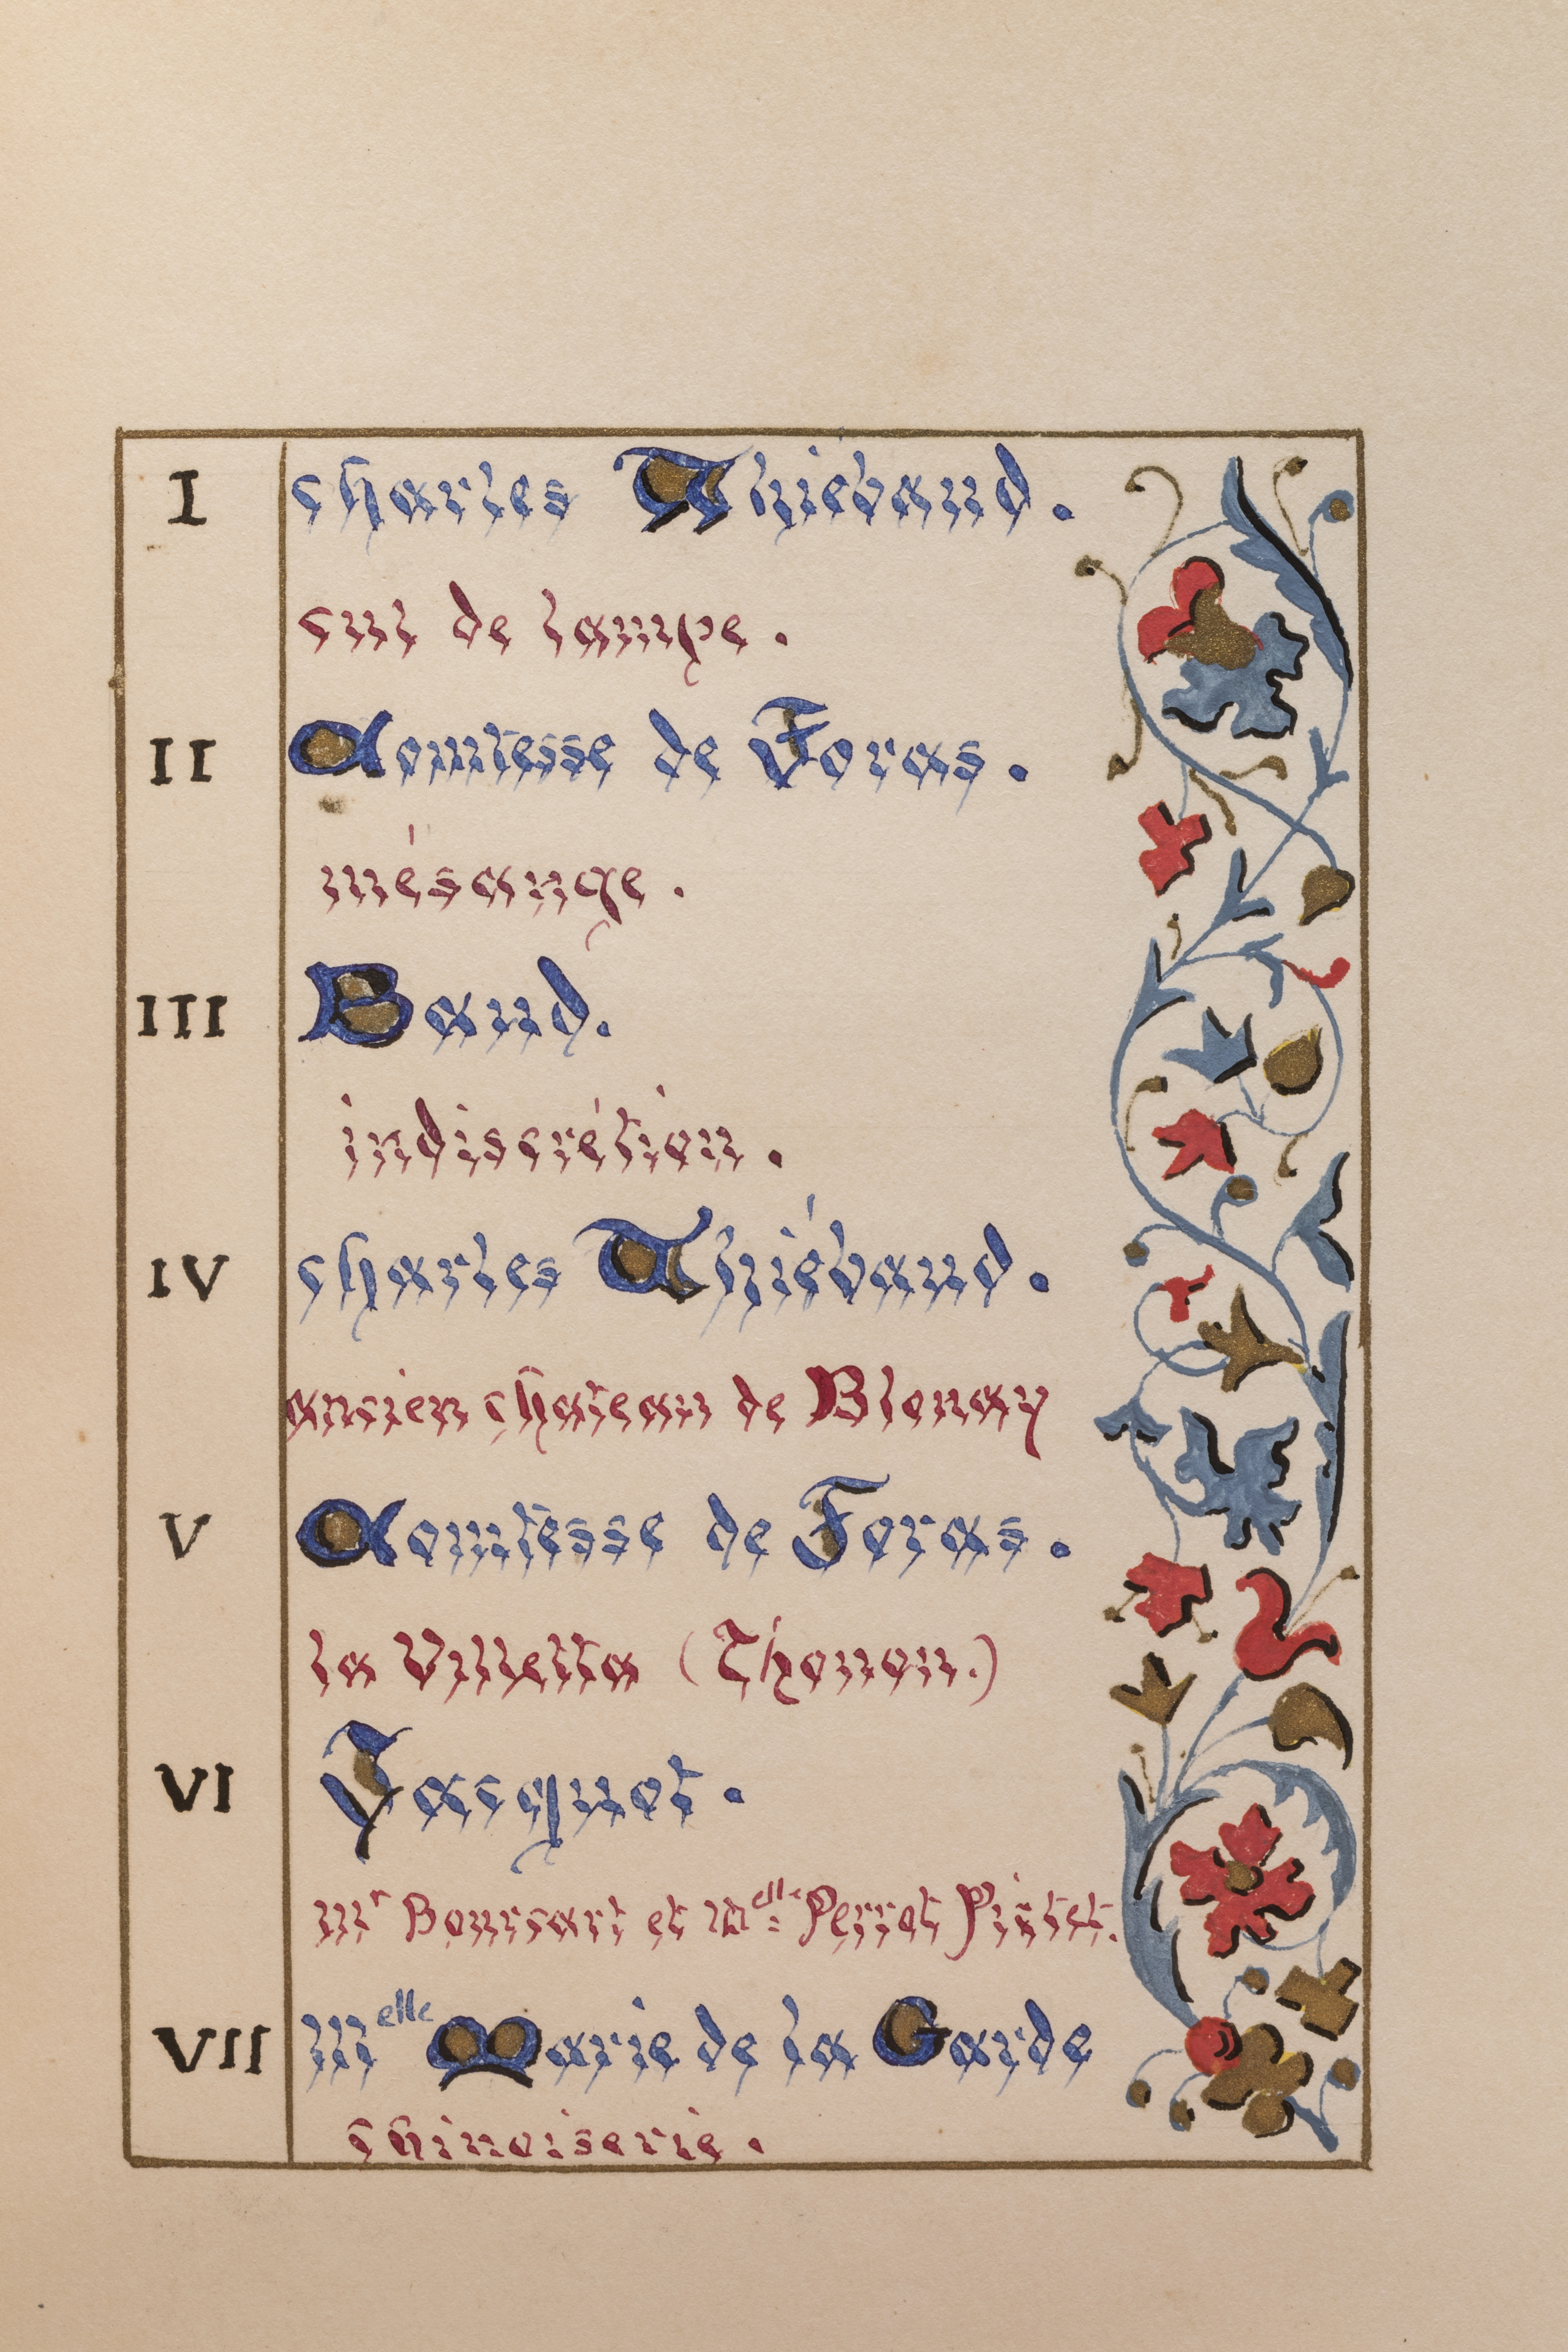 I charles Thiébaud.
cul de lampe.
II Comtesse de Foras.
mésange.
III Baud.
indiscrétion.
IV charles Thiébaud.
ancien chateau de Blonay
V Comtesse de Foras.
la Villetta (Thonon.)
VI Jacquot.
Mr Boucart et Melle Perrot Pistet.
VII Melle Marie de la Garde
chinoiserie.